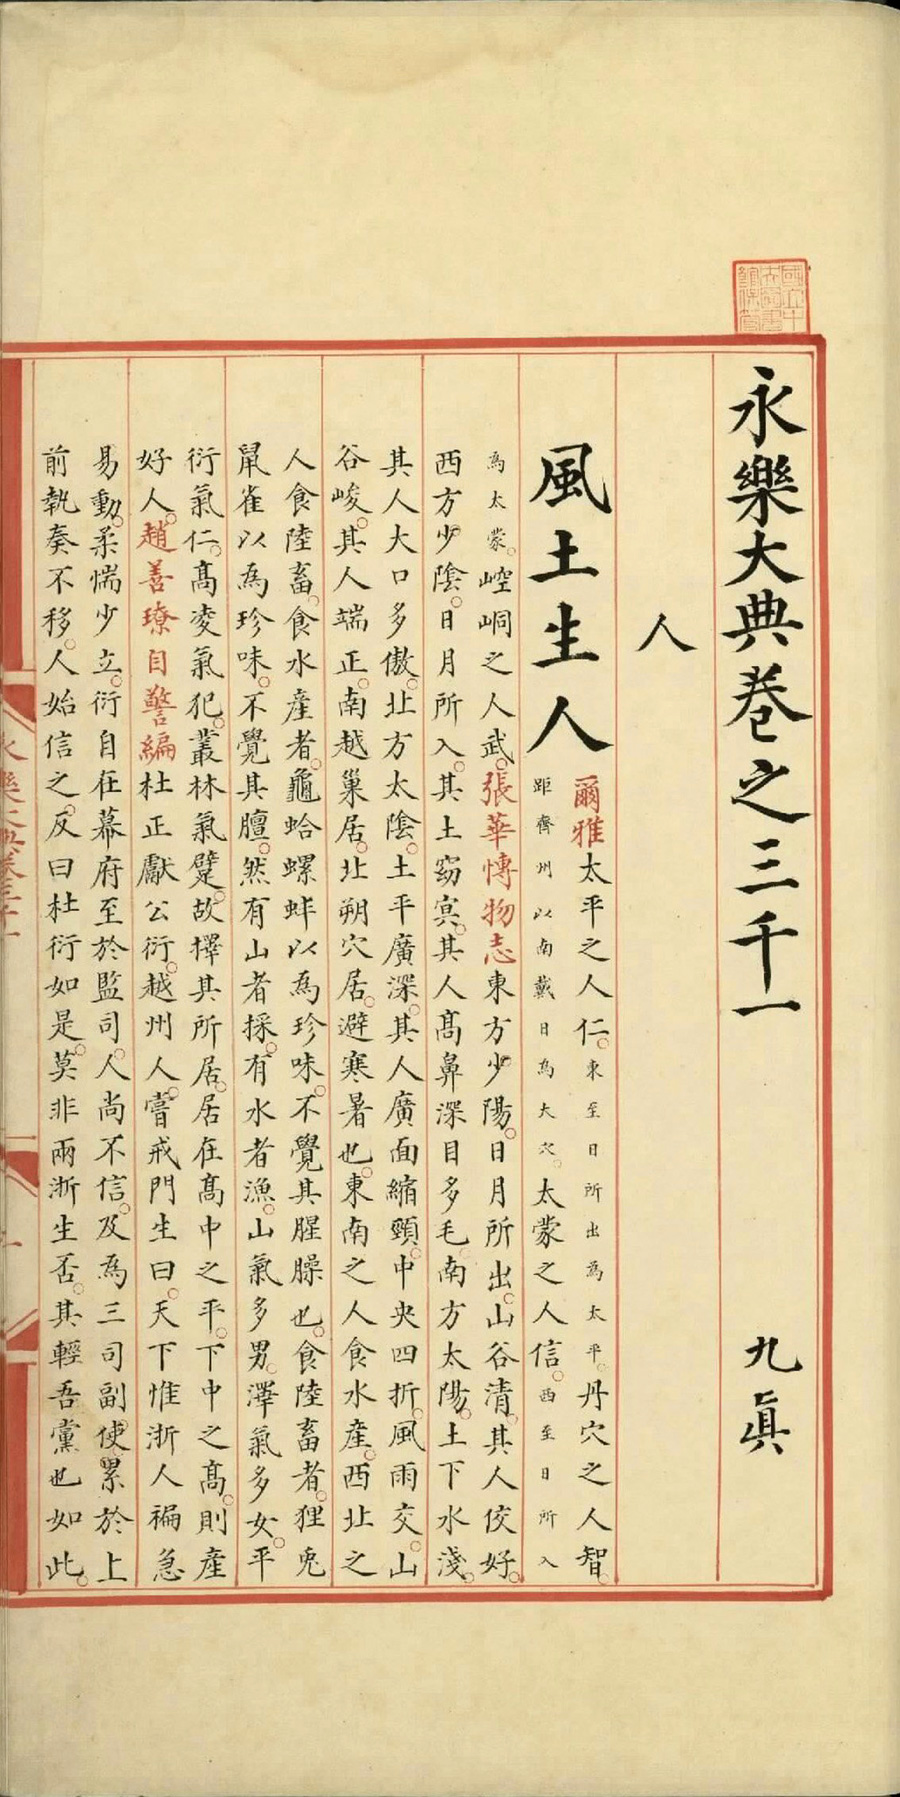 永樂大典卷之三千一 九眞
人
風土生人
爾雅太平之人仁東至日所出爲太平丹穴之人智
距齊州以南戴日爲大穴太蒙之人信西至日所入
爲太蒙崆峒之人武張華愽物志東方少陽日月所出山谷清其人佼好
西方少陰日月所入其土窈冥其人髙鼻深目多毛南方太陽土下水淺
其人大口多傲北方太陰土平廣深其人廣面縮頸中央四折風雨交山
谷峻其人端正南越巢居北朔穴居避寒暑也東南之人食水産西北之
人食陸畜食水産者龜蛤螺蚌以爲珍味不覺其腥臊也食陸畜者狸兎
鼠雀以爲珍味不覺其膻然有山者採有水者漁山氣多男澤氣多女平
衍氣仁髙凌氣犯叢林氣躄故擇其所居居在髙中之平下中之髙則産
好人趙善璙自警編杜正獻公衍越州人嘗戒門生曰天下惟浙人褊急
易動柔懦少立衍自在幕府至於監司人尚不信及爲三司副使累於上
前執奏不移人始信之反曰杜衍如是莫非兩浙生否其輕吾黨也如此
國立中央圖書館保管
永樂大典卷三千一
一